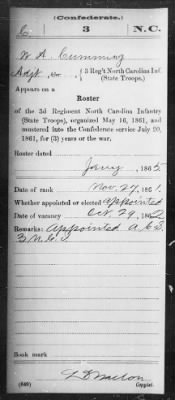 (Confederate.)
C 3 N.C.
W. A. Cumming
Adjt, Co. , 3 Reg't North Carolina Inf.
(State Troops.)
Appears on a
Roster
of the 3d Regiment North Carolina Infantry
(State Troops), organized May 16, 1861, and
mustered into the Confederate service July 20,
1861, for (3) years or the war.
Roster dated
Jany , 1865
Date of rank Nov. 27, 1861.
Whether appointed or elected appointed
Date of vacancy Oct. 29, 1862
Remarks: Appointed A.C.S.
3 N.C.
Book mark
(649) Copyist.